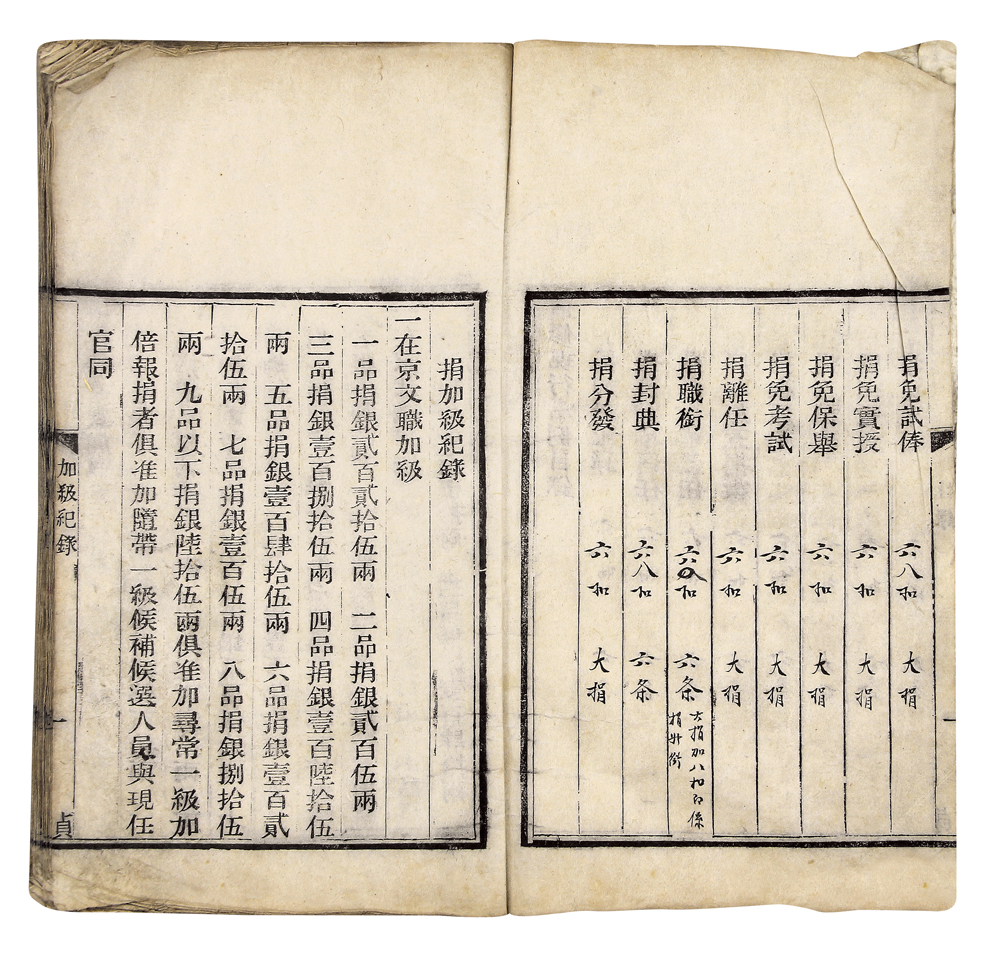 捐免試俸 六八扣 大捐
捐免實授 六扣 大捐
捐免保舉 六扣 大捐
捐免考試 六扣 大捐
捐離任 六扣 大捐
捐職銜 六扣 六条
大捐加八扣即係
捐升銜
捐封典 六八扣 六条
捐分發 六扣 大捐
捐加級紀錄
一在京文職加級
一品捐銀貳百貳拾伍兩 二品捐銀貳百伍兩
三品捐銀壹百捌拾伍兩 四品捐銀壹百陸拾伍
兩 五品捐銀壹百肆拾伍兩 六品捐銀壹百貳
拾伍兩 七品捐銀壹百伍兩 八品捐銀捌拾伍
兩 九品以下捐銀陸拾伍兩俱准加尋常一級加
倍報捐者俱准加隨帶一級候補候選人員與現任
官同
加級紀錄 一 貞